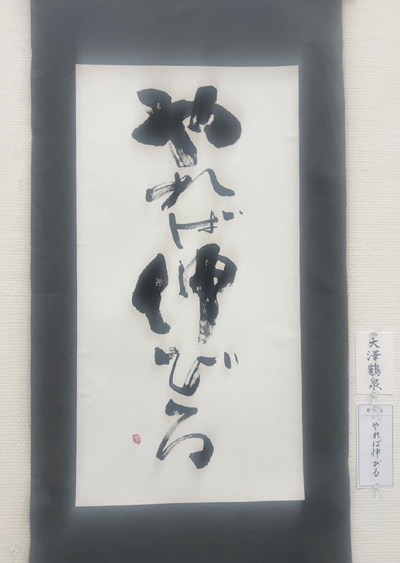 やれば伸びる
大澤鶴泉
やれば伸びる